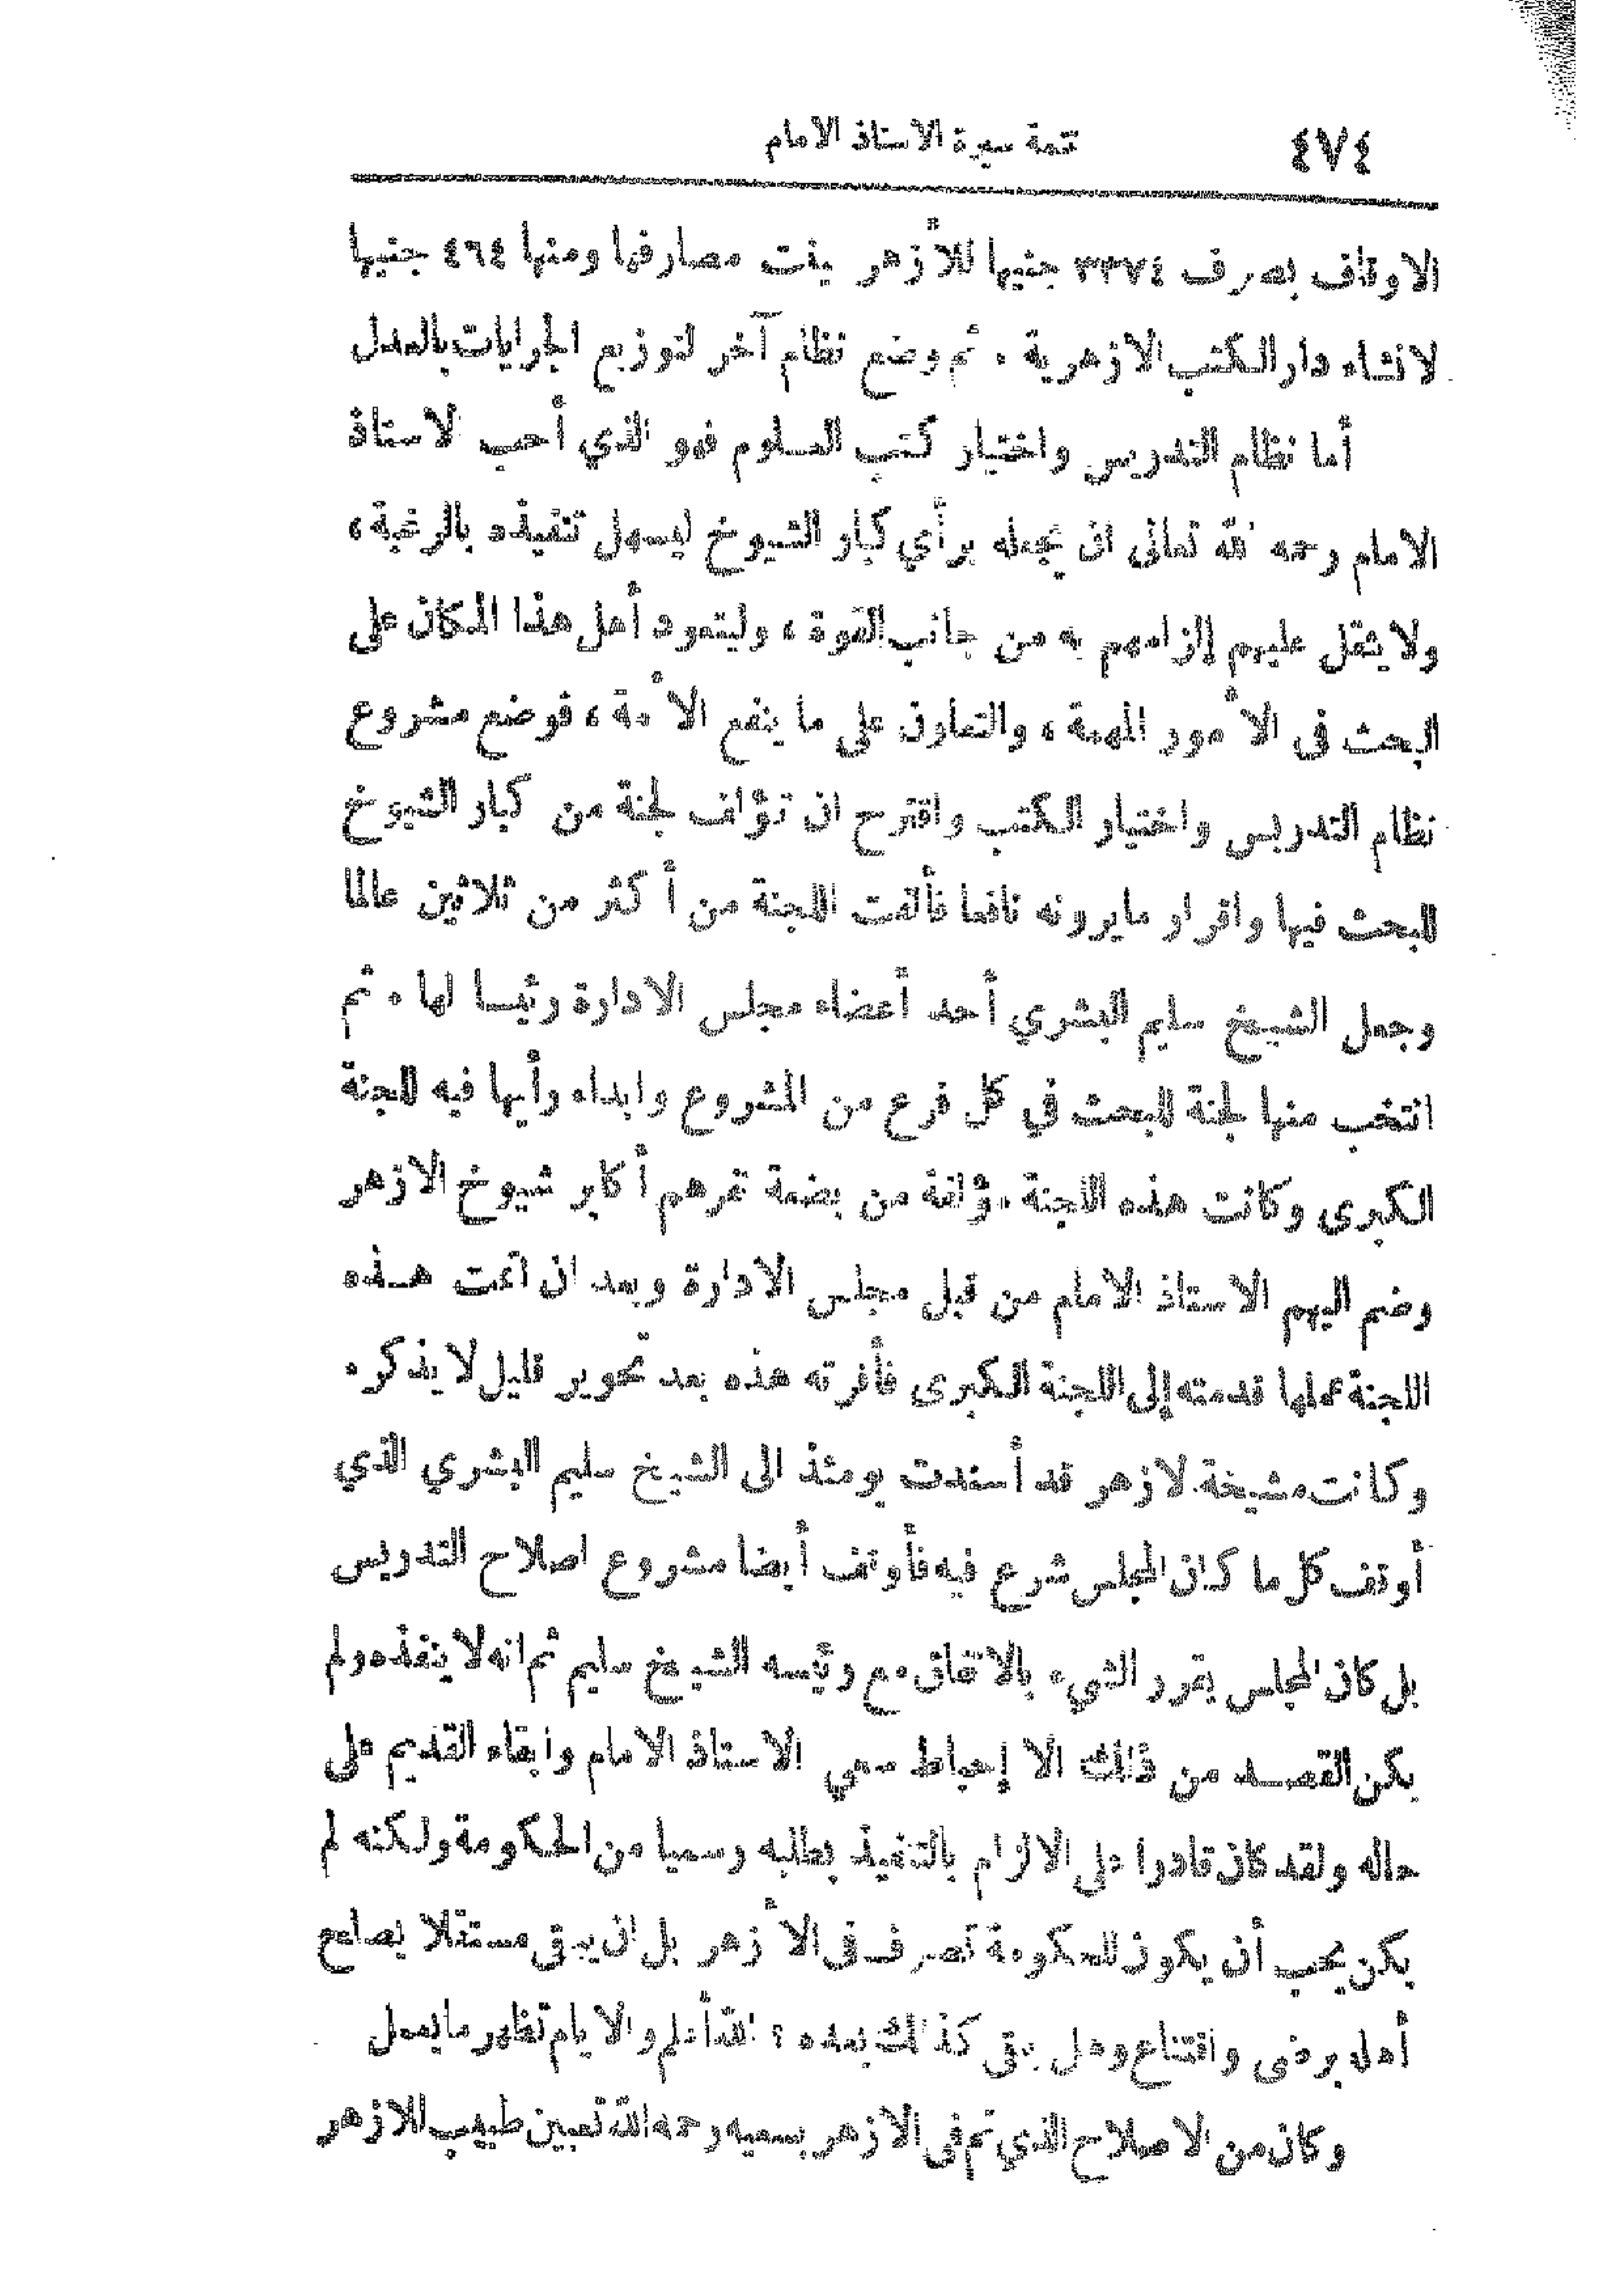 ٤٧٤
تتمة سيرة الاستاذ الامام
الاوقاف بصرف ٣٢٧٤ جنيها للأزهر بينت مصارفها ومنها ٤٦٤ جنيها
لانشاء دار الكتب الازهرية . ثم وضع نظام آخر لتوزيع الجرايات بالعدل
أما نظام التدريس واختيار كتب العلوم فهو الذي أحب الاستاذ
الامام رحمه الله تعالى ان يجعله برأي كبار الشيوخ ليسهل تنفيذه بالرغبة ،
ولا يثقل عليهم إلزامهم به من جانب القوة ، وليتعود أهل هذا المكان على
البحث في الأمور المهمة ، والتعاون على ما ينفع الأمة ، فوضع مشروع
نظام التدريس واختيار الكتب واقترح ان تؤلف لجنة من كبار الشيوخ
للبحث فيها واقرار مايرونه نافعا فألفت اللجنة من أكثر من ثلاثين عالما
وجعل الشيخ سليم البشري أحد أعضاء مجلس الادارة رئيسا لها . ثم
انتخب منها لجنة للبحث في كل فرع من المشروع وابداء رأيها فيه للجنة
الكبرى وكانت هذه اللجنة مؤلفة من بضعة نفرهم أكابر شيوخ الازهر
وضم اليهم الاستاذ الامام من قبل مجلس الادارة وبعد ان اتمت هذه
اللجنة عملها قدمته إلى اللجنة الكبرى فأقرته هذه بعد تحوير قليل لا يذكر .
وكانت مشيخة الازهر قد أسندت يومئذ الى الشيخ سليم البشري الذي
أوقف كل ما كان المجلس شرع فيه فأوقف أيضا مشروع اصلاح التدريس
بل كان المجلس يقرر الشيء بالاتفاق مع رئيسه الشيخ سليم ثم انه لا ينفذه ولم
يكن القصد من ذلك الا إحباط سعي الاستاذ الامام وابقاء القديم على
حاله ولقد كان قادرا على الالزام بالتنفيذ بطلبه رسميا من الحكومة ولكنه لم
يكن يحب أن يكون للحكومة تصرف في الأزهر بل ان يبقى مستقلا يصلحه
أهله برضى واقتناع وهل يبقى كذلك بعده ؟ الله أعلم والايام تظهر ما يعمل
وكان من الاصلاح الذي تم في الازهر بسعيه رحمه الله تعيين طبيب للازهر